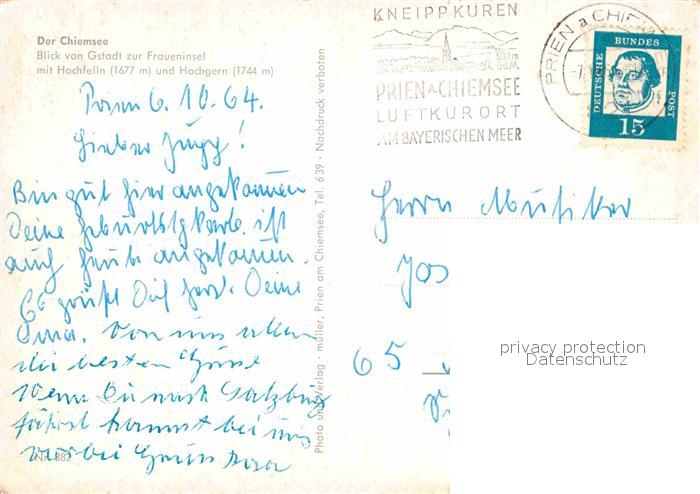 Der Chiemsee
Blick von Gstadt zur Fraueninsel
mit Hochfelln (1677 m) und Hochgern (1744 m)
Prien 6. 10. 64.
Lieber Jupp!
Bin gut hier angekommen
Deine Geburtstgkarte ist
auch heute angekommen.
Es grüßt Dich herz. Deine
Oma. Von uns allen
die besten Grüße
Wenn Du nach Salzburg
fährst kommst bei uns
vorbei Gruss
Nr. 882
Photo und Verlag · müller, Prien am Chiemsee, Tel. 639 · Nachdruck verboten
KNEIPPKUREN
PRIEN A. CHIEMSEE
LUFTKURORT
AM BAYERISCHEN MEER
PRIEN a CHIEM
DEUTSCHE
BUNDES
POST
15
Herrn Musiker
Jos
65
privacy protection
Datenschutz